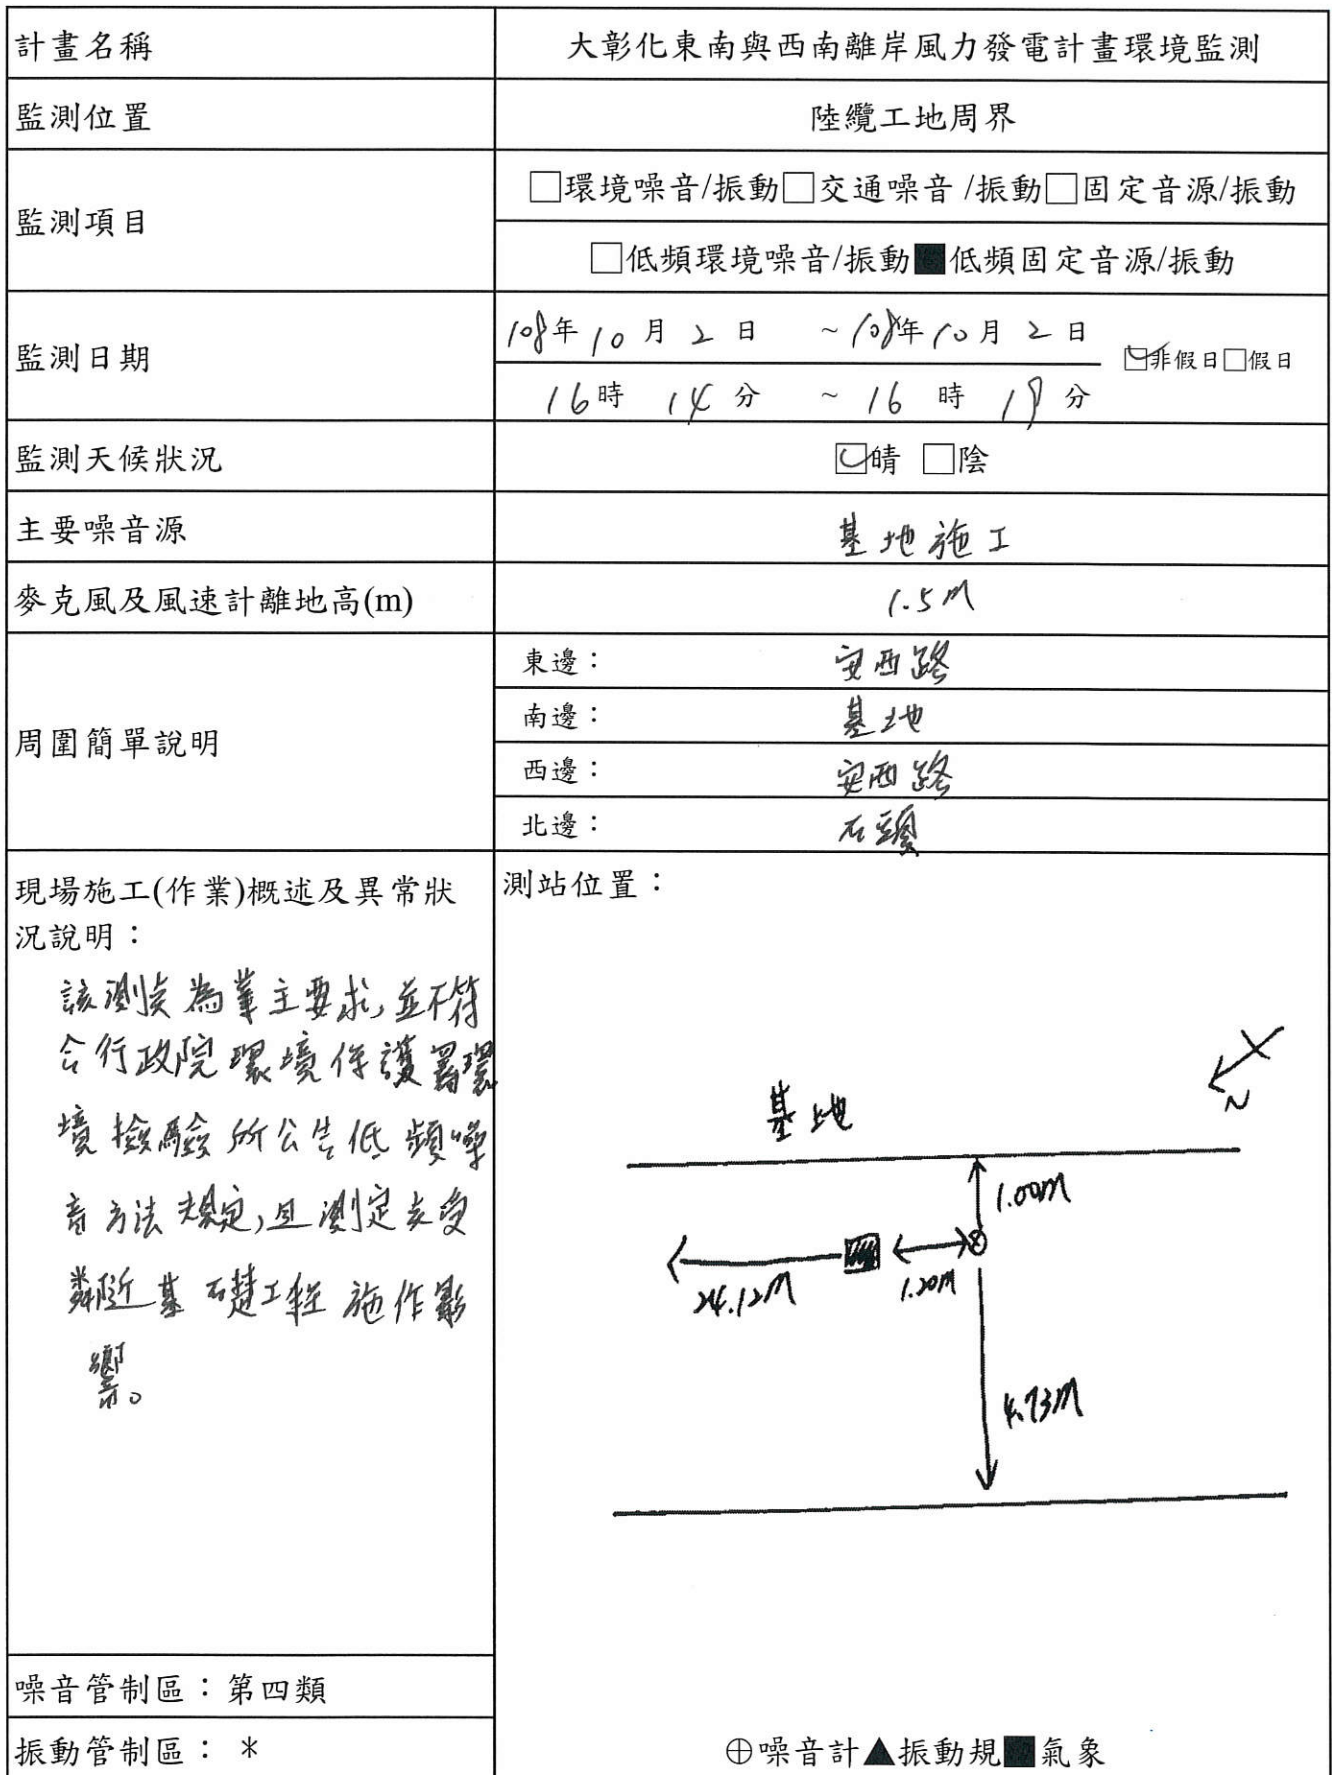 計畫名稱 大彰化東南與西南離岸風力發電計畫環境監測
監測位置 陸纜工地周界
監測項目 □環境噪音/振動□交通噪音 /振動□固定音源/振動
□低頻環境噪音/振動■低頻固定音源/振動
監測日期 108年10月2日 ~108年10月2日 ☑非假日□假日
16時 14分 ~ 16時 19分
監測天候狀況 ☑晴 □陰
主要噪音源 基地施工
麥克風及風速計離地高(m) 1.5m
周圍簡單說明
東邊: 安西路
南邊: 基地
西邊: 安西路
北邊: 石頭
現場施工(作業)概述及異常狀
況說明:
該測點為業主要求,並不符
合行政院環境保護署環
境檢驗所公告低頻噪
音方法規定,且測定表受
鄰近基礎工程施作影
響。
測站位置:
N
基地
1.00m
24.12m
1.20m
4.73m
噪音管制區:第四類
振動管制區: *
⊕噪音計▲振動規■氣象